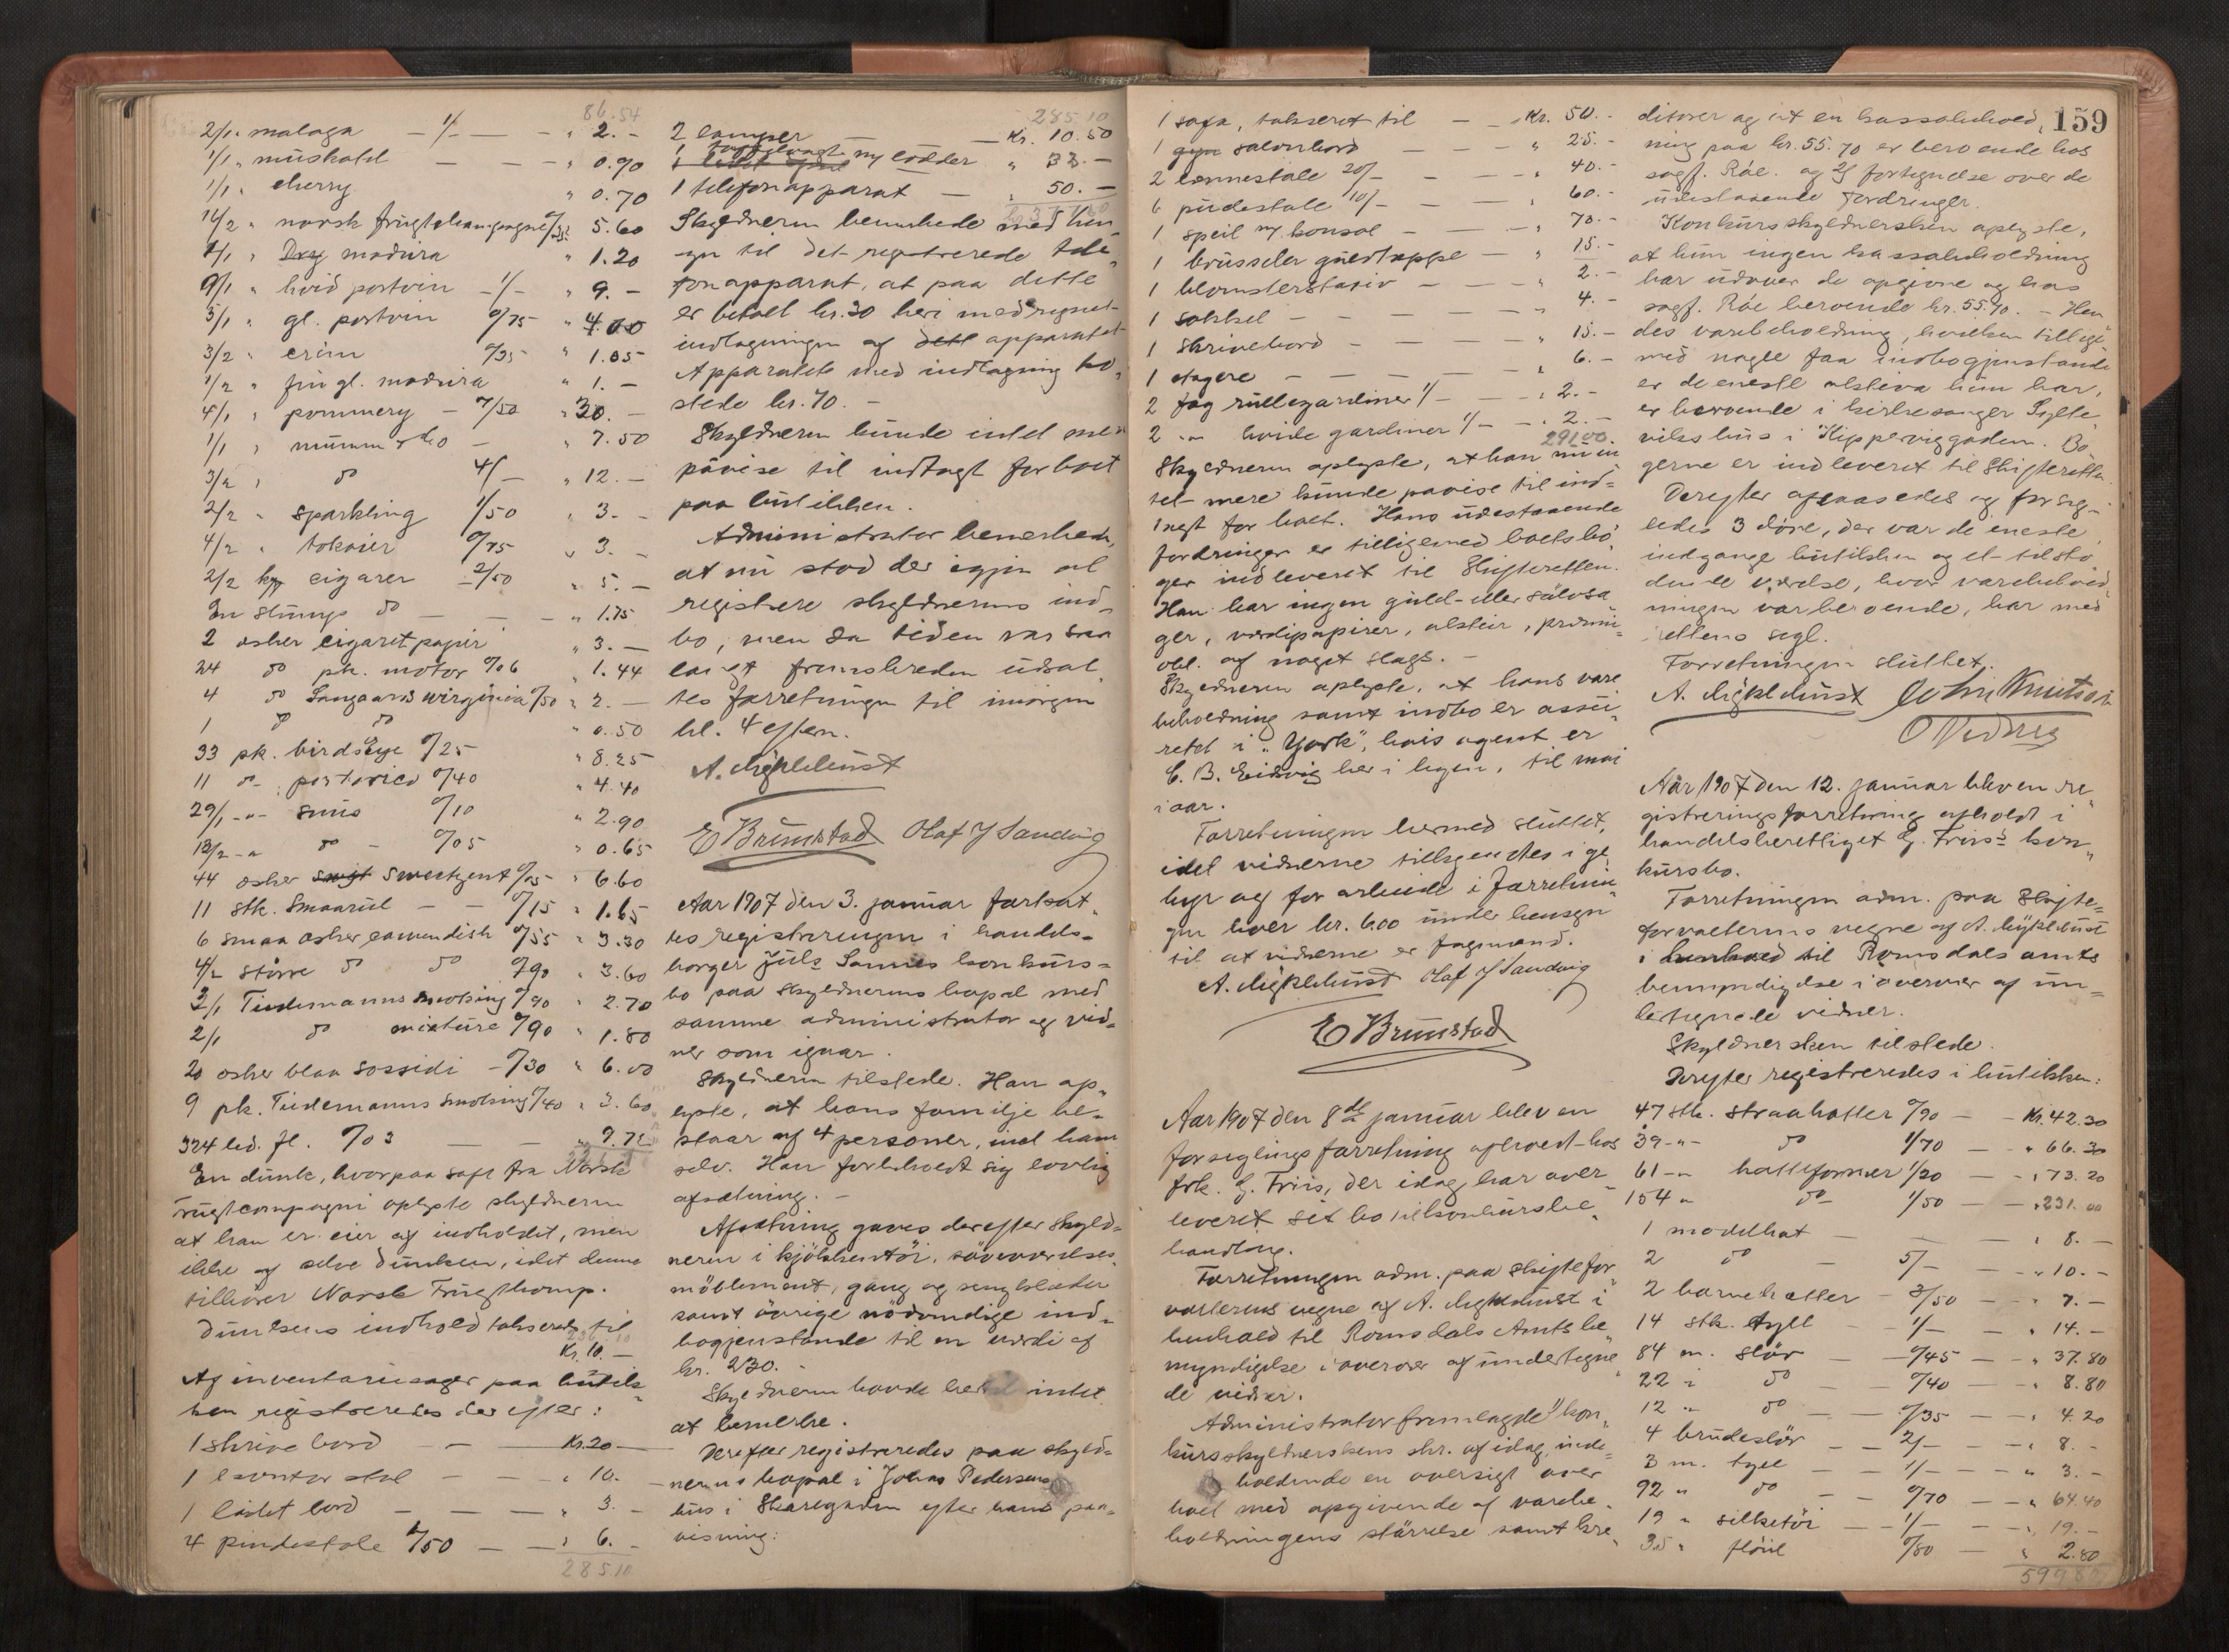 86.54
2/1 " malaga — 1/- — " 2.-
1/1 " muskatel — — " 0.90
1/1 " cherry " 0.70
14/2 " norsk frugtchampagne 5.60
1/1 " Dry madeira " 1.20
9/1 " hvid portvin -1/- " 9.-
5/1 " gl. portvin 0/75 "
3/2 " erim 0/35 " 1.05
1/2 " fin gl. madeira " 1.-
4/1 " pommery - 7/50 " 30.-
1/1 " mumm " 7.50
3/2 " do 4/- " 12.-
2/2 " sparkling 1/50 " 3.-
4/2 " tokaier 0/75 " 3.-
2/2 kp cigarer 2/50 " 5.-
En slump do — — " 1.75
2 esker cigaretpapir " 3.-
24 do pk. motor 0/06 " 1.44
4 do Langaards wirginia 0/50 " 2.-
1 do do " 0.50
33 pk. birdseye 0/25 " 8.25
11 do portorico 0/40 " 4.40
29/1 -"- snus 0/10 " 2.90
13/2 -" do - 0/05 " 0.65
44 esker sweetzent 0/15 " 6.60
11 stk. Smaarul — — 0/15 " 1.65
6 smaa esker cavendish 0/55 " 3.30
4/2 större do do 0/90 " 3.60
3/1 Tiedemanns smoking 0/90 " 2.70
2/1 do mixture 0/90 " 1.80
20 esker blaa sossidi - 0/30 " 6.00
9 pk. Tiedemanns smoking 0/40 " 3.60
324 led. fl. 0/03 — — " 9.72
En dunk, hvorpaa saft fra Norsk
Frugtcompagni oplyste skyldneren
at han er eier af indholdet, men
ikke af selve dunken, idet denne
tilhører Norsk Frugtkomp.
Dunkens indhold takseredes til
Kr. 10.—
Af inventariesager paa butik-
ken registreredes derefter:
1 skrivebord — — Kr. 20—
1 kontorstol — — " 10.-
1 lidet bord — — — " 3.-
4 pindestole 1/50 — — " 6.-
285.10
285.10
2 lamper — — Kr. 10.50
1 ny lodder " 33.—
1 telefonapparat — " 50.—
Skyldneren bemerkede med hen-
syn til det registrerede tele-
fonapparat, at paa dette
er betalt kr. 30 heri medregnet
indtagningen af apparatet
Apparatet med indtagning ko-
stede kr. 70.—
Skyldneren kunde intet mere
påvise til indtægt for boet
paa butikken.
Administrator bemerkede,
at nu stod der igjen at
registrere skyldnerens ind-
bo, men da tiden var saa
langt fremskreden udsat-
tes forretningen til imorgen
kl. 4 eftern.
A. Myklebust
E. Brunstad Olaf J Sandvig
Aar 1907 den 3. januar fortsat-
tes registreringen i handels-
borger Juls Sannes konkurs-
bo paa skyldnerens bopæl med
samme administrator og vid-
ner som igaar.
Skyldneren tilstede. Han op-
lyste, at hans familje be-
staar af 4 personer, incl ham
selv. Han forbeholdt sig lovlig
afsætning.—
Afsætning gaves derefter skyld-
neren i kjökkentöi, soveværelses-
möblement, gang og sengklæder
samt övrige nödvendige ind-
bogjenstande til en værdi af
kr. 230.—
Skyldneren havde hertil intet
at bemerke.
Derefter registreredes paa skyld-
nerens bopæl i Johan Pedersens
hus i Skaregaden efter hans paa-
visning:
159
1 sofa, takseret til — — Kr. 50.-
1 salonbord — — — " 25.-
2 lænestole 20/- — — " 40.-
6 pudestole 10/- — — " 60.-
1 speil m/ konsol — — " 70.-
1 brüsseler gulvteppe — " 15.-
1 blomsterstativ — — — " 2.-
1 sokkel — — — — " 4.-
1 skrivebord — — — — " 15.-
1 etagere — — — " 6.-
2 fag rullegardiner 1/- — " 2.-
2 -"- hvide gardiner 1/- — " 2.-
291.00
Skyldneren oplyste, at han nu in-
tet mere kunde paavise til ind-
tægt for boet. Hans udestaaende
fordringer er tilligemed boets bö-
ger indleveret til Skifteretten.
Han har ingen guld- eller sølvsa-
ger, værdipapirer, aktier, præmie-
obl. af noget slags.—
Skyldneren oplyste, at hans vare-
beholdning samt indbo er assu-
reret i "York", hvis agent er
C. B. Eidsvig her i byen, til mai
i aar.
Forretningen hermed sluttet,
idet vidnerne tillagendes i ge-
byr og for arbeide i forretnin-
gen hver kr. 6.00 under hensyn
til at vidnerne er fagmænd.
A. Myklebust Olaf J Sandvig
E Brunstad
Aar 1907 den 8de januar blev en
forseglingsforretning afholdt hos
frk. G. Friis, der idag har over-
leveret sit bo til konkursbe-
handling.
Forretningen adm. paa skiftefor-
valterens vegne af A. Myklebust i
henhold til Romsdals Amts be-
myndigelse i overvær af undertegne-
de vidner.
Administrator fremlagde 1) kon-
kursskyldnerskens skr. af idag, inde-
holdende en oversigt over
boet med opgivende af varebe-
holdningens störrelse samt kre-
ditorer og at en kassabehold-
ning paa kr. 55.70 er beroende hos
sagf. Råe. og 2) fortegnelse over de
udestaaende fordringer.
Konkursskyldnersken oplyste,
at hun ingen kassabeholdning
har udover de opgivne og hos
sagf. Råe beroende kr. 55.70. — Hen-
des varebeholdning, hvilken tillige
med nogle faa indbogjenstande
er de eneste aktiva hun har,
er beroende i kirkesanger Sylte-
viks hus i Kipperviggaden. Bö-
gerne er indleveret til Skifteretten.
Derefter aflaasedes og forseg-
ledes 3 døre, der var de eneste
indgange butikken og et tilstö-
dende værelse, hvor varebehold-
ningen var beroende, har med
rettens segl.
Forretningen sluttet.
A. Myklebust John Knutsen
O Vedvig
Aar 1907 den 12. januar blev en re-
gistreringsforretning afholdt i
handelsberettiget G. Friis's kon-
kursbo.
Forretningen adm. paa Skifte-
forvalterens vegne af A. Myklebust
i henhold til Romsdals amts
bemyndigelse i overvær af un-
dertegnede vidner.
Skyldnersken tilstede.
Derefter registreredes i butikken:
47 stk. straahatter 0/90 — - Kr. 42.30
39 -"- do 1/70 — - " 66.30
61 -" hatteformer 1/20 — - " 73.20
154 " do 1/50 — - " 231.00
1 modelhat — — — " 8.—
2 do — 5/- — - " 10.-
2 barnehatter - 3/50 — - " 7.—
14 stk. tyll — 1/- — - " 14.-
84 m. slör — 0/45 — - " 37.80
22 " do — 0/40 — " 8.80
12 " do — — 0/35 — - " 4.20
4 brudeslör — — 2/- — - " 8.-
3 m. tyll — — 1/- — - " 3.-
92 " do — — 0/70 — - " 64.40
19 " silketöi — — 1/- — - " 19.-
3.5 " flöiel 0/80 — " 2.80